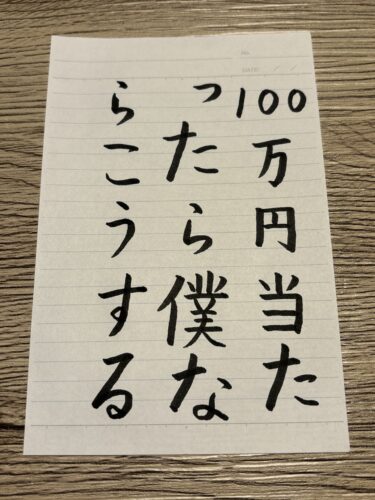 No.
DATE / /
100万円当た
ったら僕な
らこうする